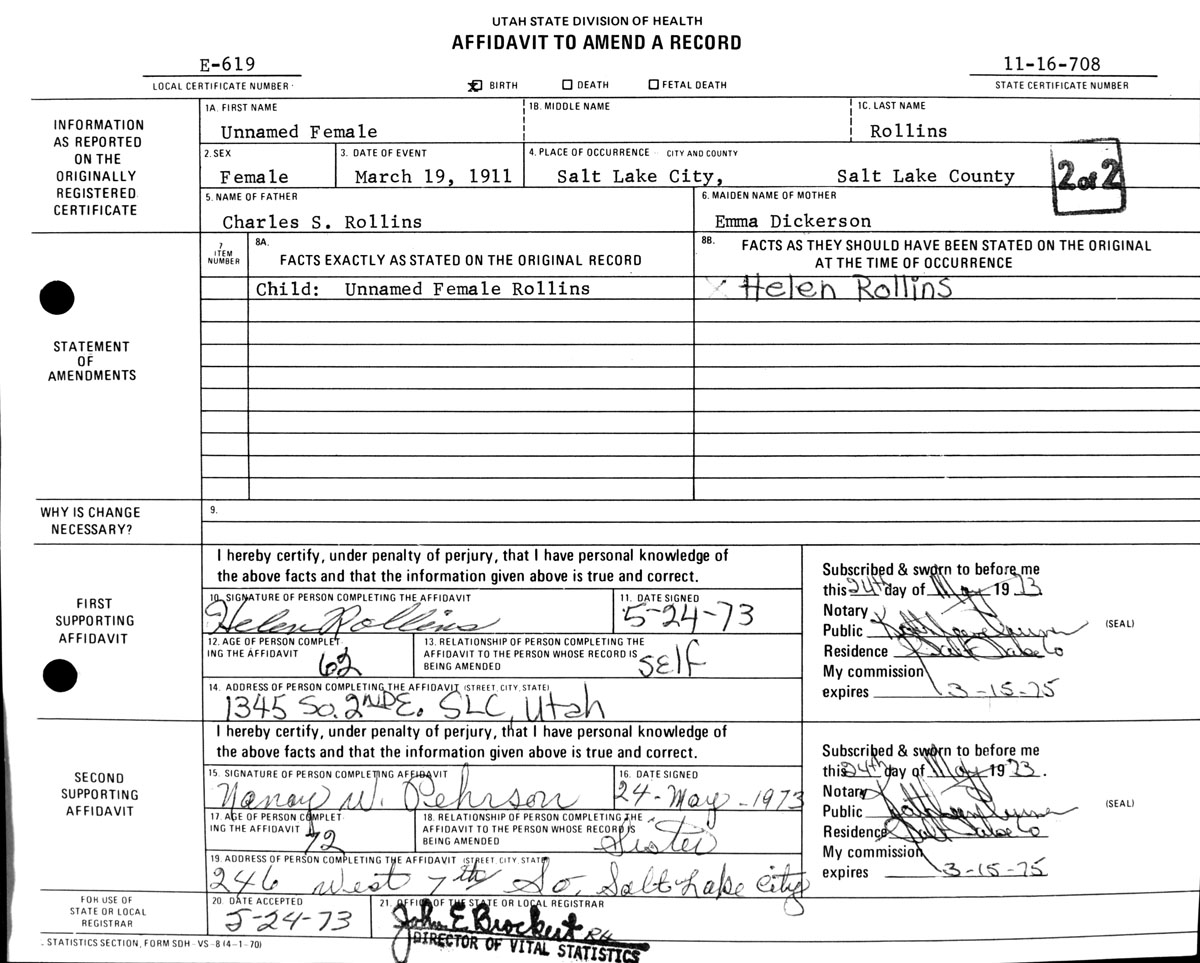 UTAH STATE DIVISION OF HEALTH
AFFIDAVIT TO AMEND A RECORD
E-619
LOCAL CERTIFICATE NUMBER
☒ BIRTH ☐ DEATH ☐ FETAL DEATH
11-16-708
STATE CERTIFICATE NUMBER
INFORMATION
AS REPORTED
ON THE
ORIGINALLY
REGISTERED
CERTIFICATE
1A. FIRST NAME
Unnamed Female
1B. MIDDLE NAME
1C. LAST NAME
Rollins
2. SEX
Female
3. DATE OF EVENT
March 19, 1911
4. PLACE OF OCCURRENCE CITY AND COUNTY
Salt Lake City, Salt Lake County
2 of 2
5. NAME OF FATHER
Charles S. Rollins
6. MAIDEN NAME OF MOTHER
Emma Dickerson
STATEMENT
OF
AMENDMENTS
7
ITEM
NUMBER
8A.
FACTS EXACTLY AS STATED ON THE ORIGINAL RECORD
8B.
FACTS AS THEY SHOULD HAVE BEEN STATED ON THE ORIGINAL
AT THE TIME OF OCCURRENCE
Child: Unnamed Female Rollins
X Helen Rollins
WHY IS CHANGE
NECESSARY?
9.
FIRST
SUPPORTING
AFFIDAVIT
I hereby certify, under penalty of perjury, that I have personal knowledge of
the above facts and that the information given above is true and correct.
10. SIGNATURE OF PERSON COMPLETING THE AFFIDAVIT
Helen Rollins
11. DATE SIGNED
5-24-73
12. AGE OF PERSON COMPLET-
ING THE AFFIDAVIT
62
13. RELATIONSHIP OF PERSON COMPLETING THE
AFFIDAVIT TO THE PERSON WHOSE RECORD IS
BEING AMENDED
self
14. ADDRESS OF PERSON COMPLETING THE AFFIDAVIT (STREET, CITY, STATE)
1345 So. 2ND E. SLC, Utah
Subscribed & sworn to before me
this 24th day of May 1973
Notary
Public
(SEAL)
Residence Salt Lake Co
My commission
expires 3-15-75
SECOND
SUPPORTING
AFFIDAVIT
I hereby certify, under penalty of perjury, that I have personal knowledge of
the above facts and that the information given above is true and correct.
15. SIGNATURE OF PERSON COMPLETING AFFIDAVIT
Nancy W. Pehrson
16. DATE SIGNED
24-May-1973
17. AGE OF PERSON COMPLET-
ING THE AFFIDAVIT
72
18. RELATIONSHIP OF PERSON COMPLETING THE
AFFIDAVIT TO THE PERSON WHOSE RECORD IS
BEING AMENDED
Sister
19. ADDRESS OF PERSON COMPLETING THE AFFIDAVIT (STREET, CITY, STATE)
246 West 7th So. Salt Lake City
Subscribed & sworn to before me
this 24th day of May 1973.
Notary
Public
(SEAL)
Residence Salt Lake Co
My commission
expires 3-15-75
FOR USE OF
STATE OR LOCAL
REGISTRAR
20. DATE ACCEPTED
5-24-73
21. OFFICE OF THE STATE OR LOCAL REGISTRAR
John E. Brockert
DIRECTOR OF VITAL STATISTICS
STATISTICS SECTION, FORM SDH-VS-8 (4-1-70)